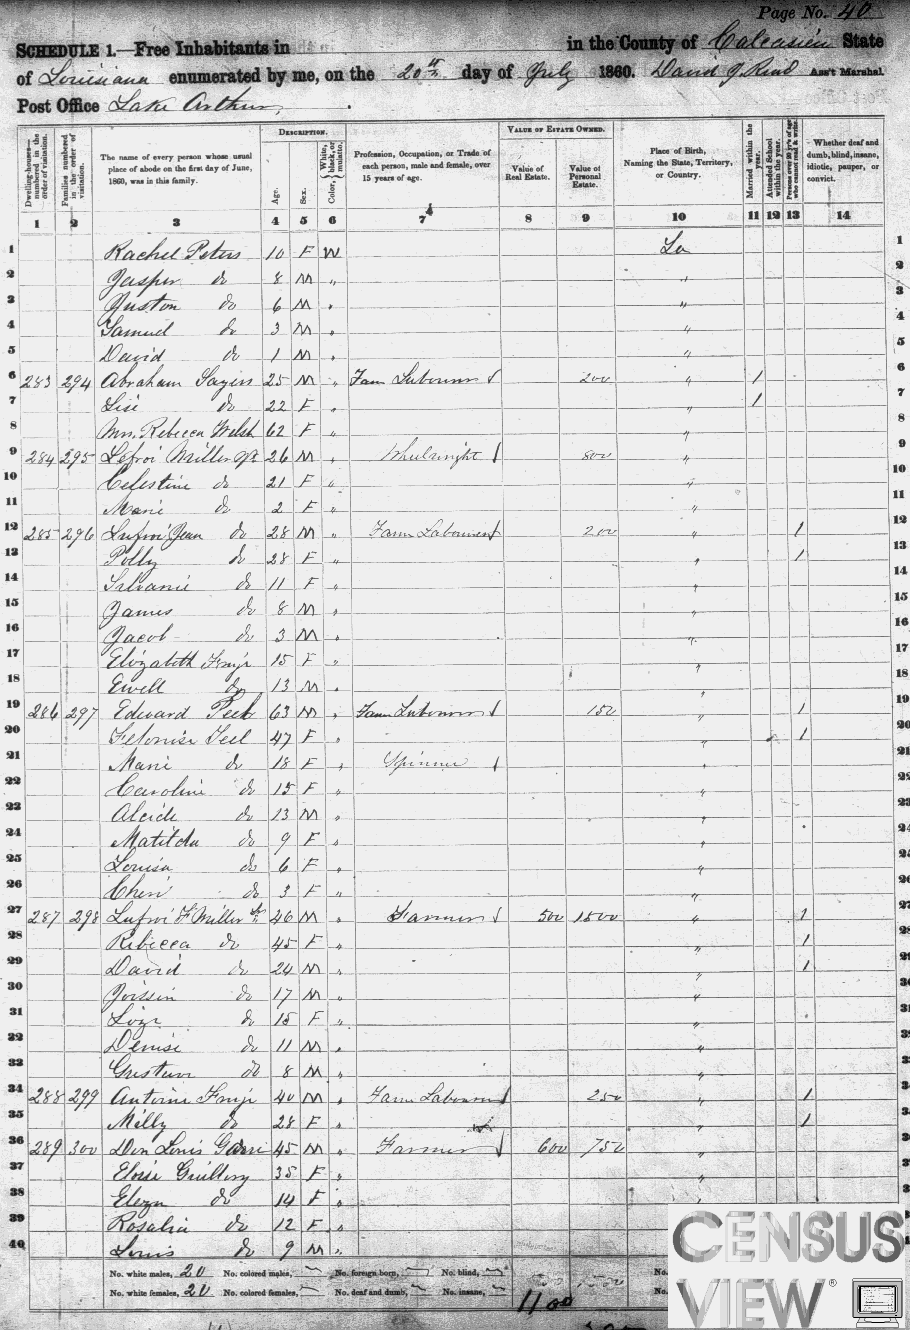 Page No. 40
SCHEDULE 1.—Free Inhabitants in in the County of Calcasieu State
of Louisiana enumerated by me, on the 20th day of July 1860. David J. Reid Ass't Marshal
Post Office Lake Arthur,
Dwelling-houses—numbered in the order of visitation. Families numbered in the order of visitation. The name of every person whose usual place of abode on the first day of June, 1860, was in this family. DESCRIPTION. Age. Sex. Color, White, black, or mulatto. Profession, Occupation, or Trade of each person, male and female, over 15 years of age. VALUE OF ESTATE OWNED. Value of Real Estate. Value of Personal Estate. Place of Birth, Naming the State, Territory, or Country. Married within the year. Attended School within the year. Persons over 20 y'rs of age who cannot read & write. Whether deaf and dumb, blind, insane, idiotic, pauper, or convict.
1 2 3 4 5 6 7 8 9 10 11 12 13 14
1 Rachel Peters 10 F W La 1
2 Jasper do 8 M " " 2
3 Juston do 6 M " " 3
4 Samuel do 3 M " " 4
5 David do 1 M " " 5
6 283 294 Abraham Sayers 25 M " Farm Labourer 200 " 1 6
7 Lise do 22 F " " 1 7
8 Mrs. Rebecca Welsh 62 F " " 8
9 284 295 Lefroi Miller 26 M " Wheelwright 800 " 9
10 Celestine do 21 F " " 10
11 Marie do 2 F " " 11
12 285 296 Lufroi Jean do 28 M " Farm Labourer 200 " 1 12
13 Polly do 28 F " " 1 13
14 Silvanie do 11 F " " 14
15 James do 8 M " " 15
16 Jacob do 3 M " " 16
17 Elizabeth 15 F " " 17
18 Ewell do 13 M " " 18
19 286 297 Edward Peel 63 M " Farm Labourer 150 " 1 19
20 Felonise Teel 47 F " " 1 20
21 Marie do 18 F " Spinner " 21
22 Caroline do 15 F " " 22
23 Alcide do 13 M " " 23
24 Matilda do 9 F " " 24
25 Louisa do 6 F " " 25
26 Cheri do 3 F " " 26
27 287 298 Lufroi F Miller 46 M " Farmer 500 1500 " 1 27
28 Rebecca do 45 F " " 1 28
29 David do 24 M " " 1 29
30 Joissin do 17 M " " 30
31 do 15 F " " 31
32 Denise do 11 M " "
33 Gustave do 8 M " "
34 288 299 Antoine 40 M " Farm Labourer 250 " 1
35 Milly do 28 F " " 1
36 289 300 Don Louis 45 M " Farmer 600 750 "
37 Eloise Guillory 35 F " "
38 Eleza do 14 F " "
39 Rosalia do 12 F "
40 Louis do 9 M "
No. white males, 20 No. colored males, No. foreign born, No. blind, No.
No. white females, 20 No. colored females, No. deaf and dumb, No. insane, 1100 No.
CENSUS
VIEW®